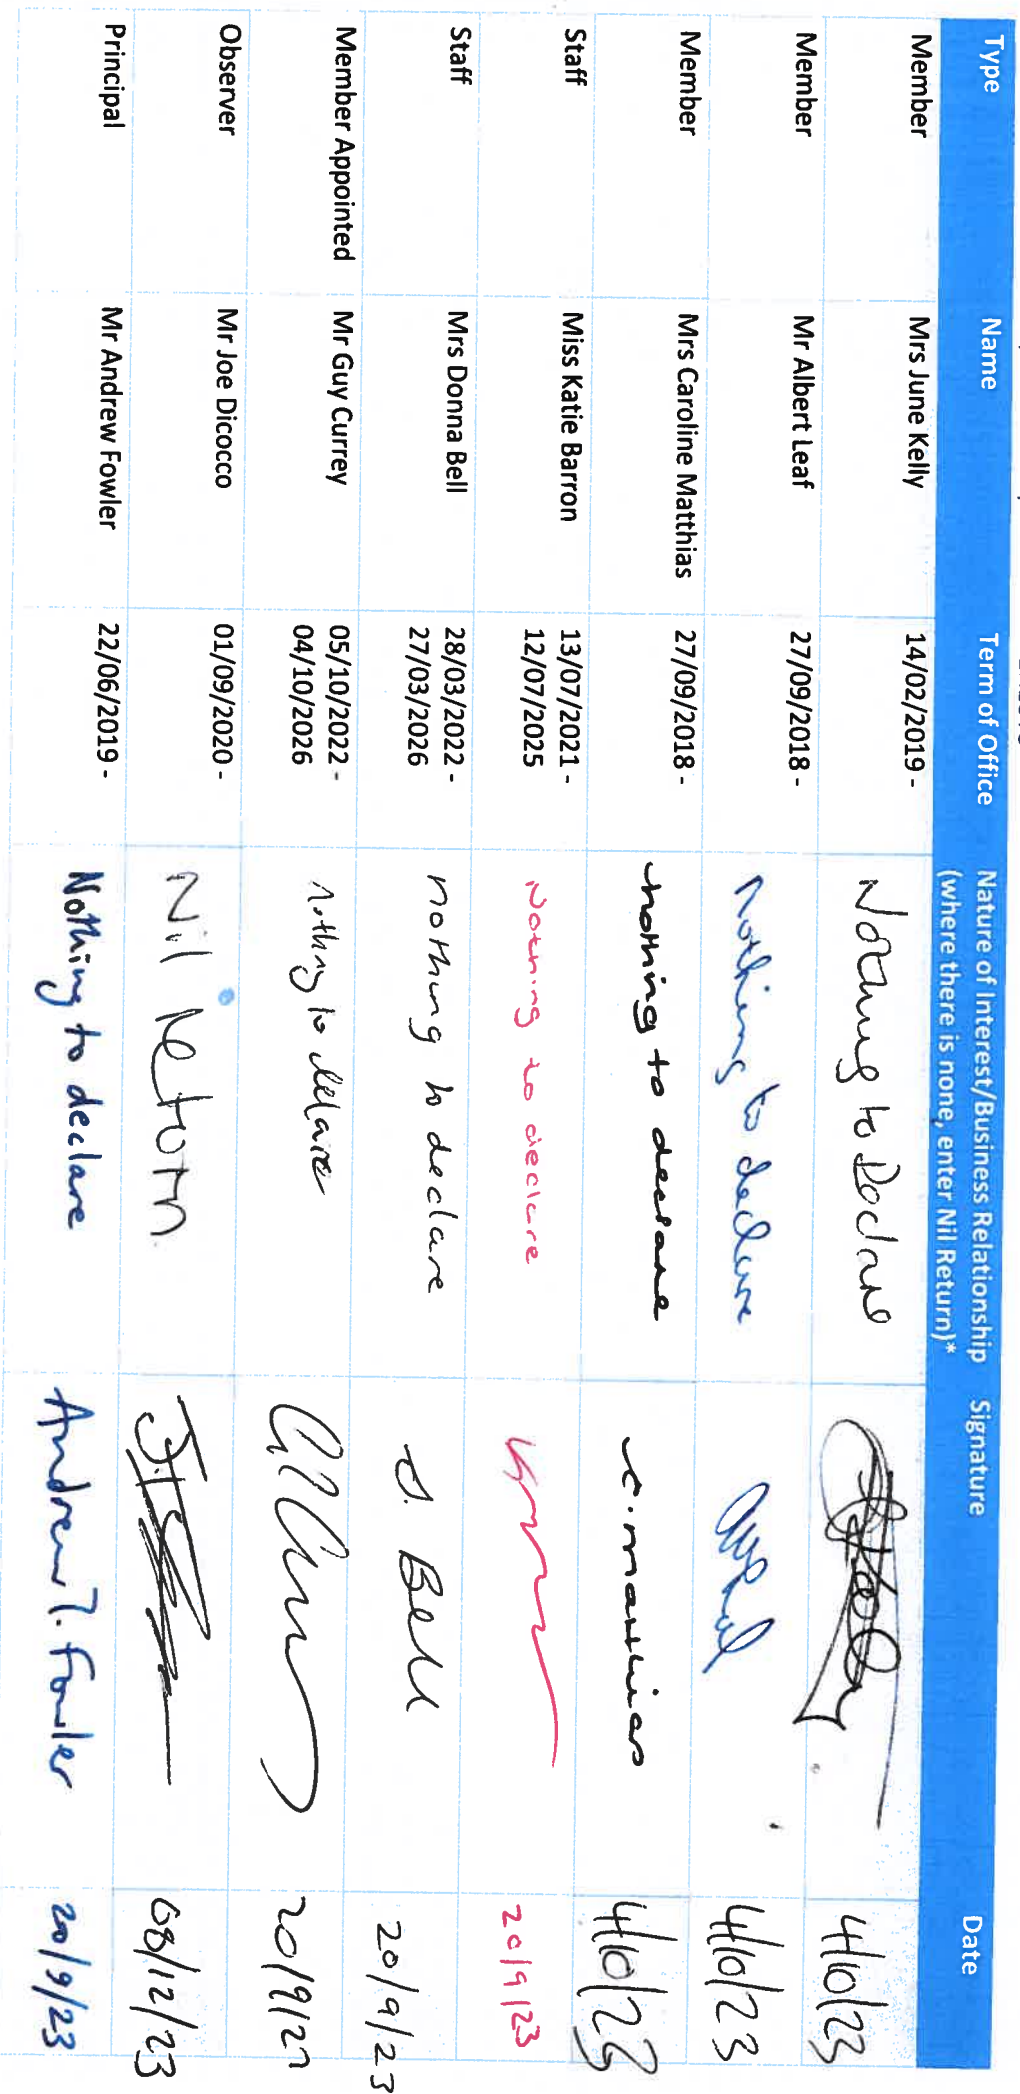 Type Name Term of Office Nature of Interest/Business Relationship (where there is none, enter Nil Return)* Signature Date
Member Mrs June Kelly 14/02/2019 - Nothing to Declare 4/10/23
Member Mr Albert Leaf 27/09/2018 - Nothing to declare 4/10/23
Member Mrs Caroline Matthias 27/09/2018 - nothing to declare c. matthias 4/10/23
Staff Miss Katie Barron 13/07/2021 - 12/07/2025 Nothing to declare 20/9/23
Staff Mrs Donna Bell 28/03/2022 - 27/03/2026 nothing to declare d. Bell 20/9/23
Member Appointed Mr Guy Currey 05/10/2022 - 04/10/2026 nothing to declare 20/9/23
Observer Mr Joe Dicocco 01/09/2020 - Nil Return 08/12/23
Principal Mr Andrew Fowler 22/06/2019 - Nothing to declare Andrew T. Fowler 20/9/23